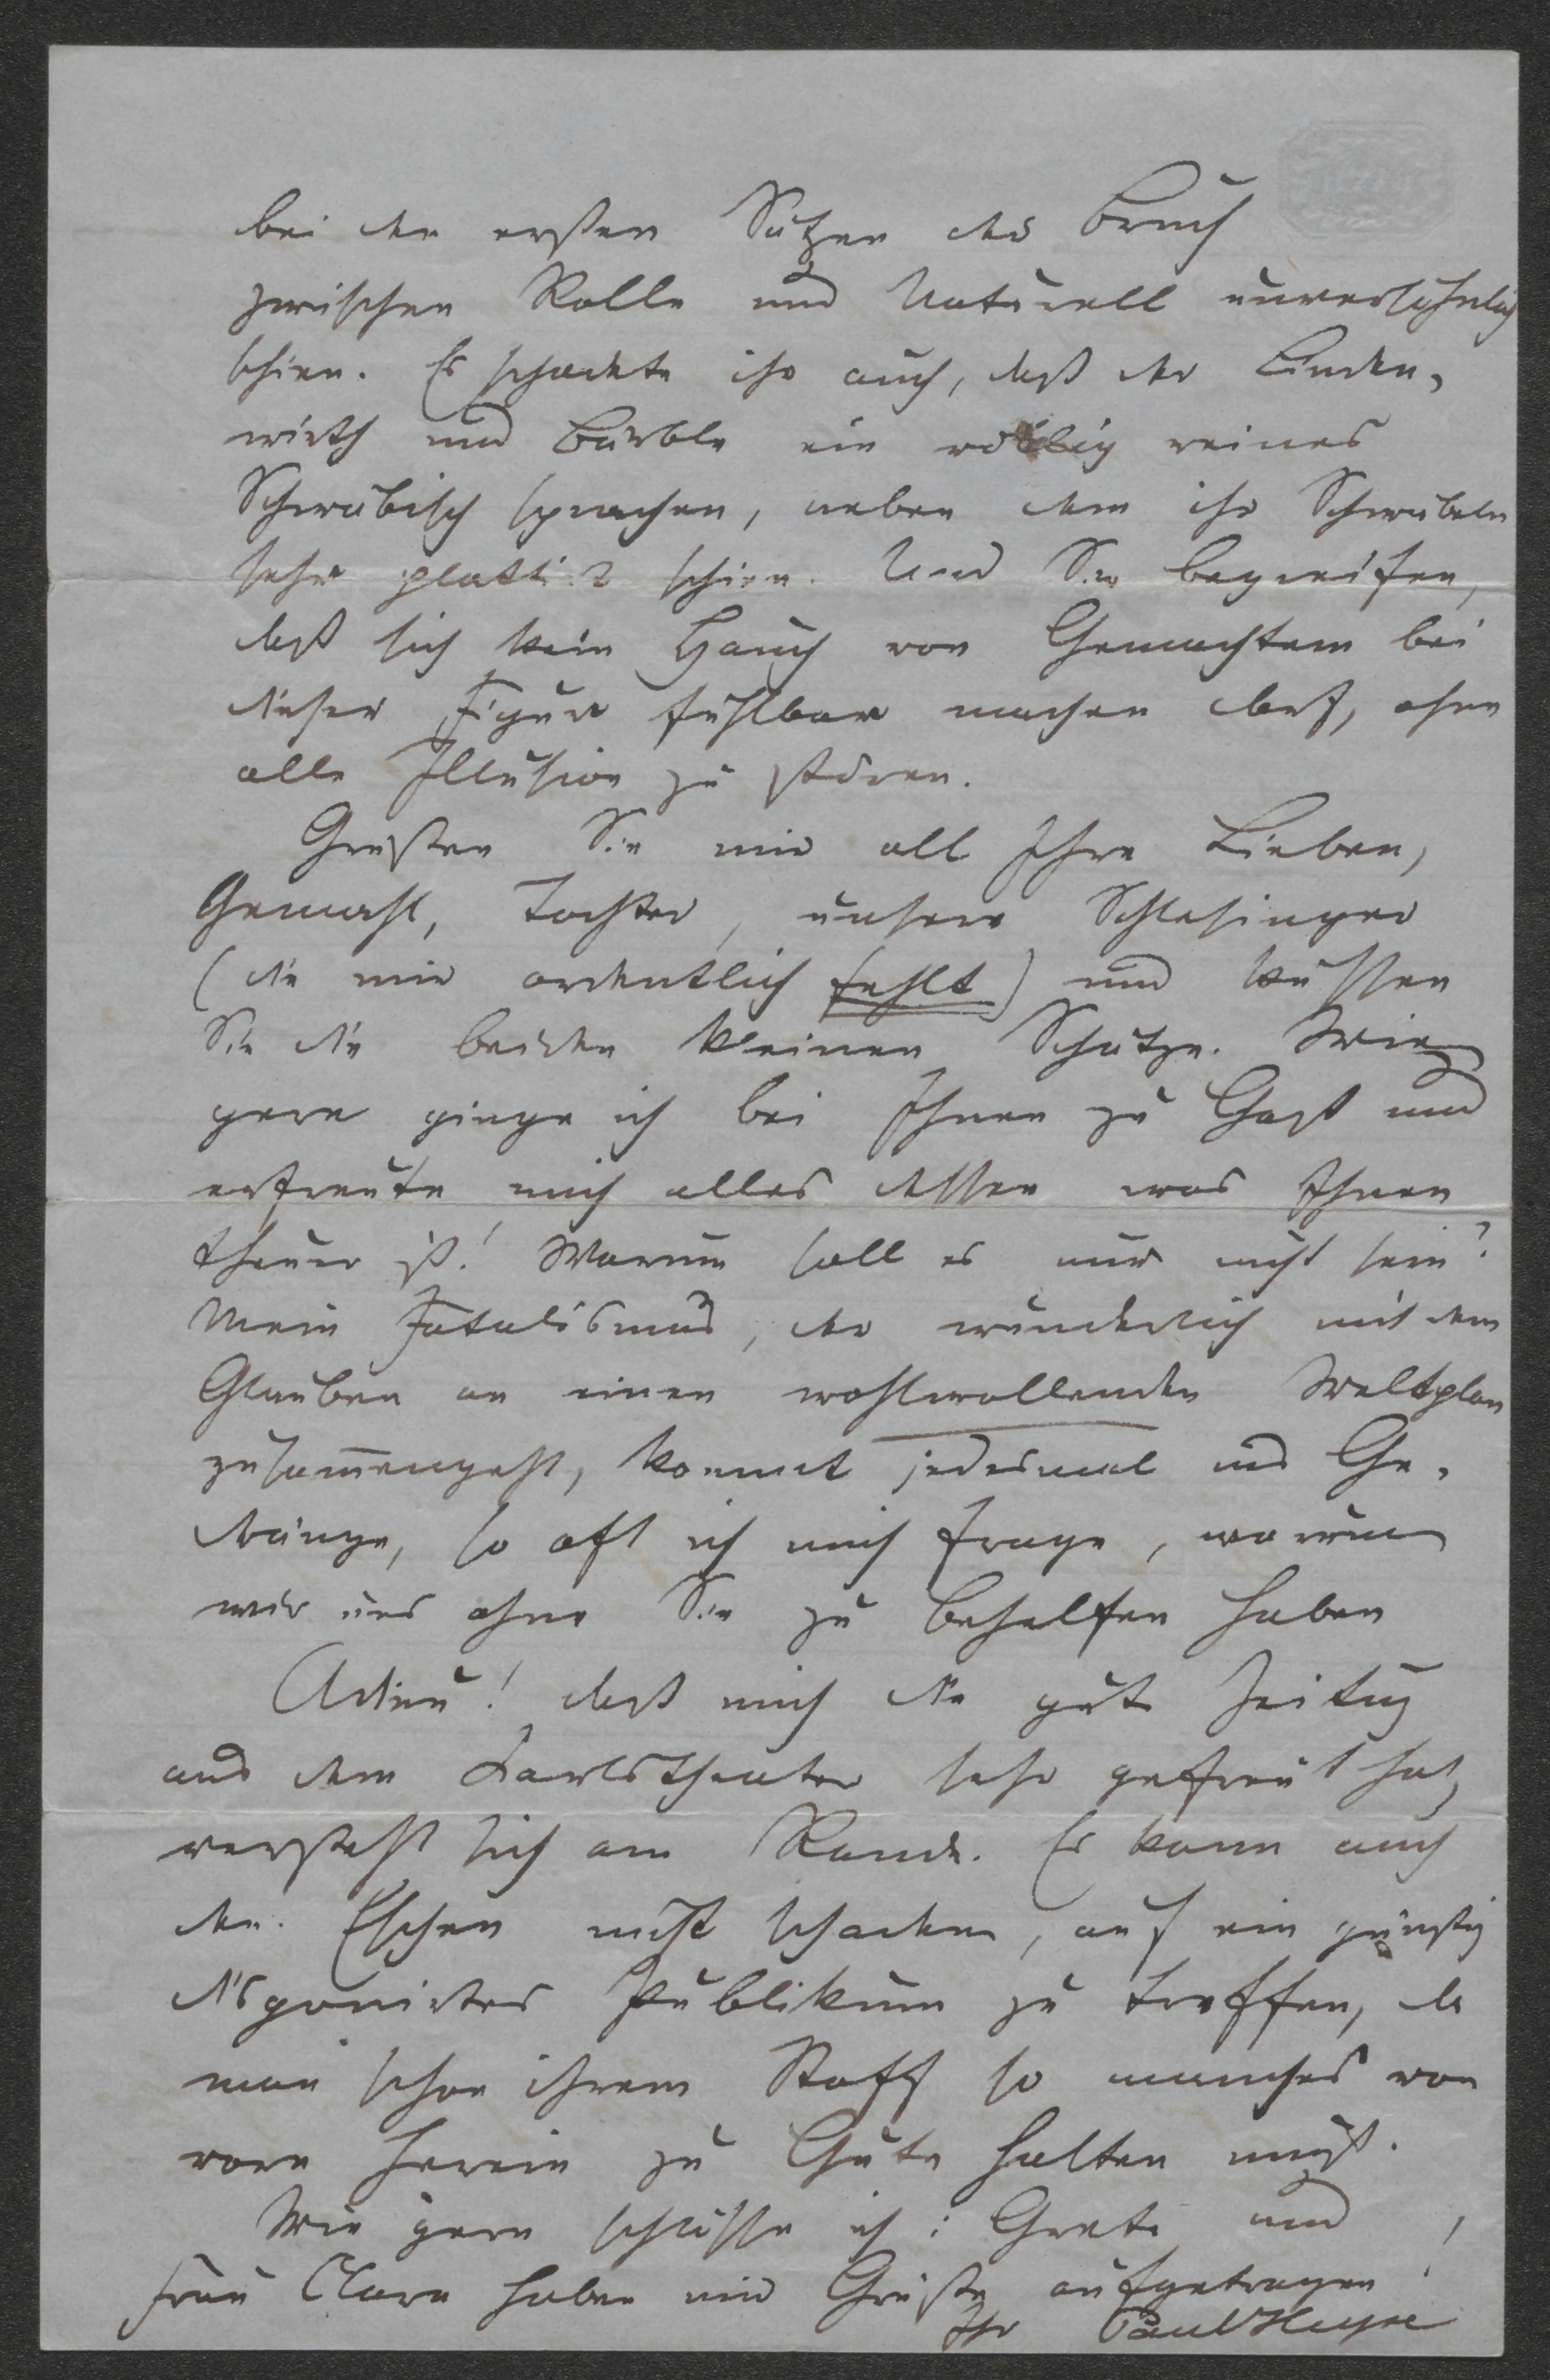 bei den ersten Sätzen der Bruch
zwischen Rolle und Naturell unversöhnlich
schien. Es schadete ihr auch, daß der Linden-
wirth und Bärbele ein völlig reines
Schwäbisch sprachen, neben dem ihr Schwäbeln
sehr plattirt schien. Und Sie begreifen,
daß sich kein Hauch von Gemachtem bei
dieser Figur fühlbar machen darf, ohne
alle Illusion zu stören.
Grüßen Sie mir all Ihre Lieben,
Gemahl, Tochter, unsere Schlesinger
(die mir ordentlich fehlt) und küssen
Sie die beiden kleinen Schätze. Wie
gern ginge ich bei Ihnen zu Gast und
erfreute mich alles dessen was Ihnen
theuer ist! Warum soll es nur nicht sein?
Mein Fatalismus, der wunderlich mit dem
Glauben an einen wohlwollenden Weltplan
zusam̅engeht, kommt jedesmal ins Ge-
dränge, so oft ich mich frage, warum
wir uns ohne Sie zu behelfen haben
Adieu! daß mich die gute Zeitung
aus dem Karlstheater sehr gefreut hat,
versteht sich am Rande. Es kann auch
den Eschen nicht schaden, auf ein günstig
disponirtes Publikum zu treffen, da
man schon ihrem Stoff so manches von
vorn herein zu Gute halten muß.
Wie gern schlösse ich: Grete und
Frau Clara haben mir Grüße aufgetragen!
Ihr Paul Heyse